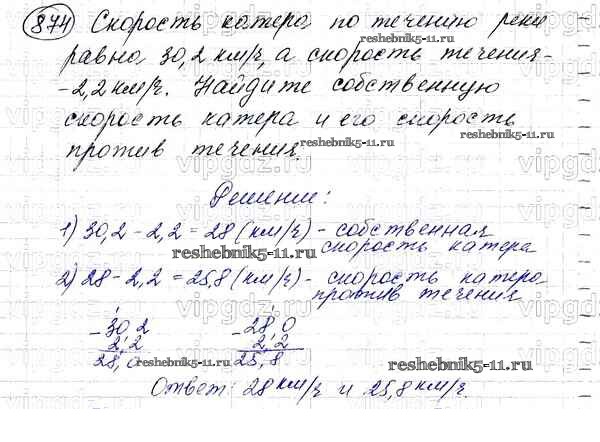 874 Скорость катера по течению реки
равна 30,2 км/ч, а скорость течения -
- 2,2 км/ч. Найдите собственную
скорость катера и его скорость
против течения.
reshebnik5-11.ru
Решение:
1) 30,2 - 2,2 = 28 (км/ч) - собственная
скорость катера
reshebnik5-11.ru
2) 28 - 2,2 = 25,8 (км/ч) - скорость катера
против течения
reshebnik5-11.ru
- 30,2 - 28,0
2,2 2,2
28,0 25,8
reshebnik5-11.ru
reshebnik5-11.ru
Ответ: 28 км/ч и 25,8 км/ч.
vipgdz.com